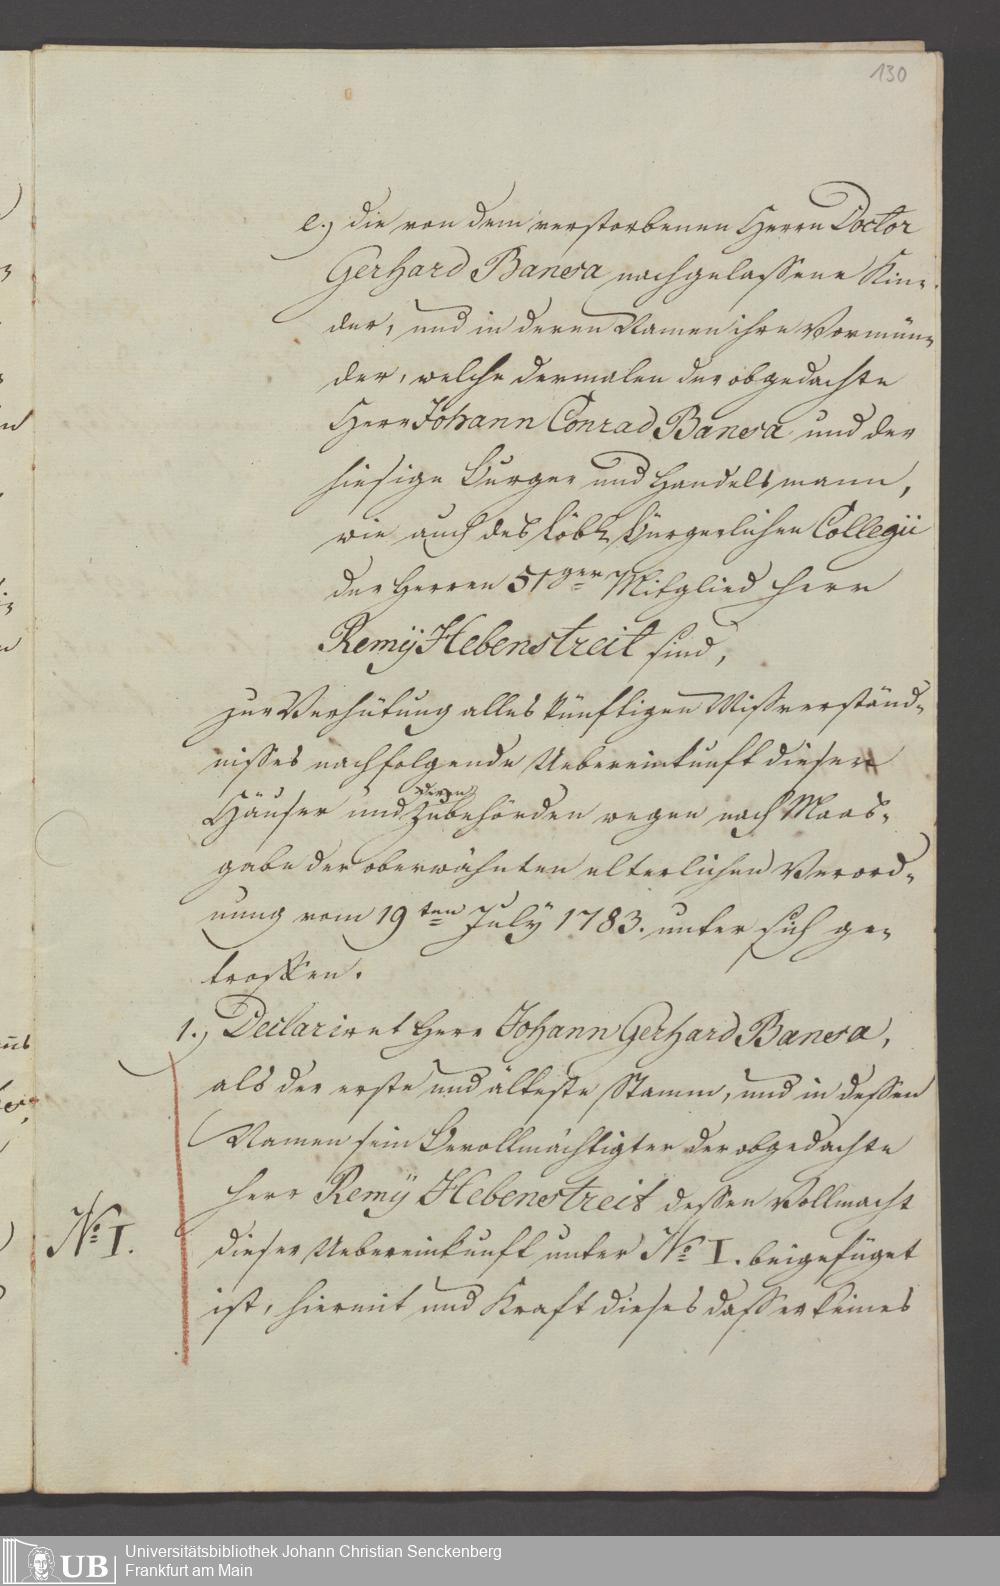 130
e.) die von dem verstorbenen Herrn Doctor
Gerhard Bansa nachgelassene Kin-
der, und in deren Namen ihre Vormün-
der, welche dermalen der obgedachte
Herr Johann Conrad Bansa und der
hiesige Burger und Handelsmann,
wie auch des löbl. bürgerlichen Collegii
der Herren 51ger Mitglied Herr
Remÿ Hebenstreit sind,
zur Verhütung alles künftigen Missverständ-
nisses nachfolgende Uebereinkunft dieser
deren
Häuser und Zubehörden wegen nach Maas-
gabe der oberwähnten elterlichen Verord-
nung vom 19ten Julÿ 1783. unter sich ge-
troffen.
1.) Declariret Herr Johann Gerhard Bansa,
als der erste und älteste Stamm, und in dessen
Namen sein Bevollmächtigter der obgedachte
Herr Remÿ Hebenstreit dessen Vollmacht
No. I.
dieser Uebereinkunft unter No. I. beigefüget
ist, hiermit und Kraft dieses dass er keines
UB
Universitätsbibliothek Johann Christian Senckenberg
Frankfurt am Main